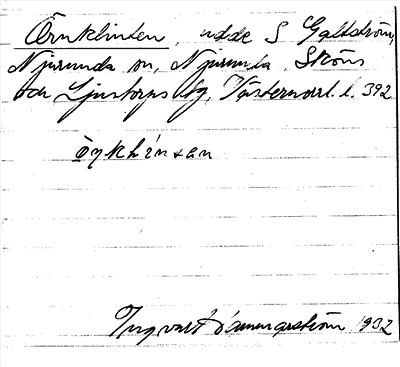 Örnklinten, udde S Galtström,
Njurunda sn, Njurunda, Sköns
och Ljustorps tg, Västernorrl. l. 392
ö̀ṇkḷìntan
Ingvart Hammarström 1932